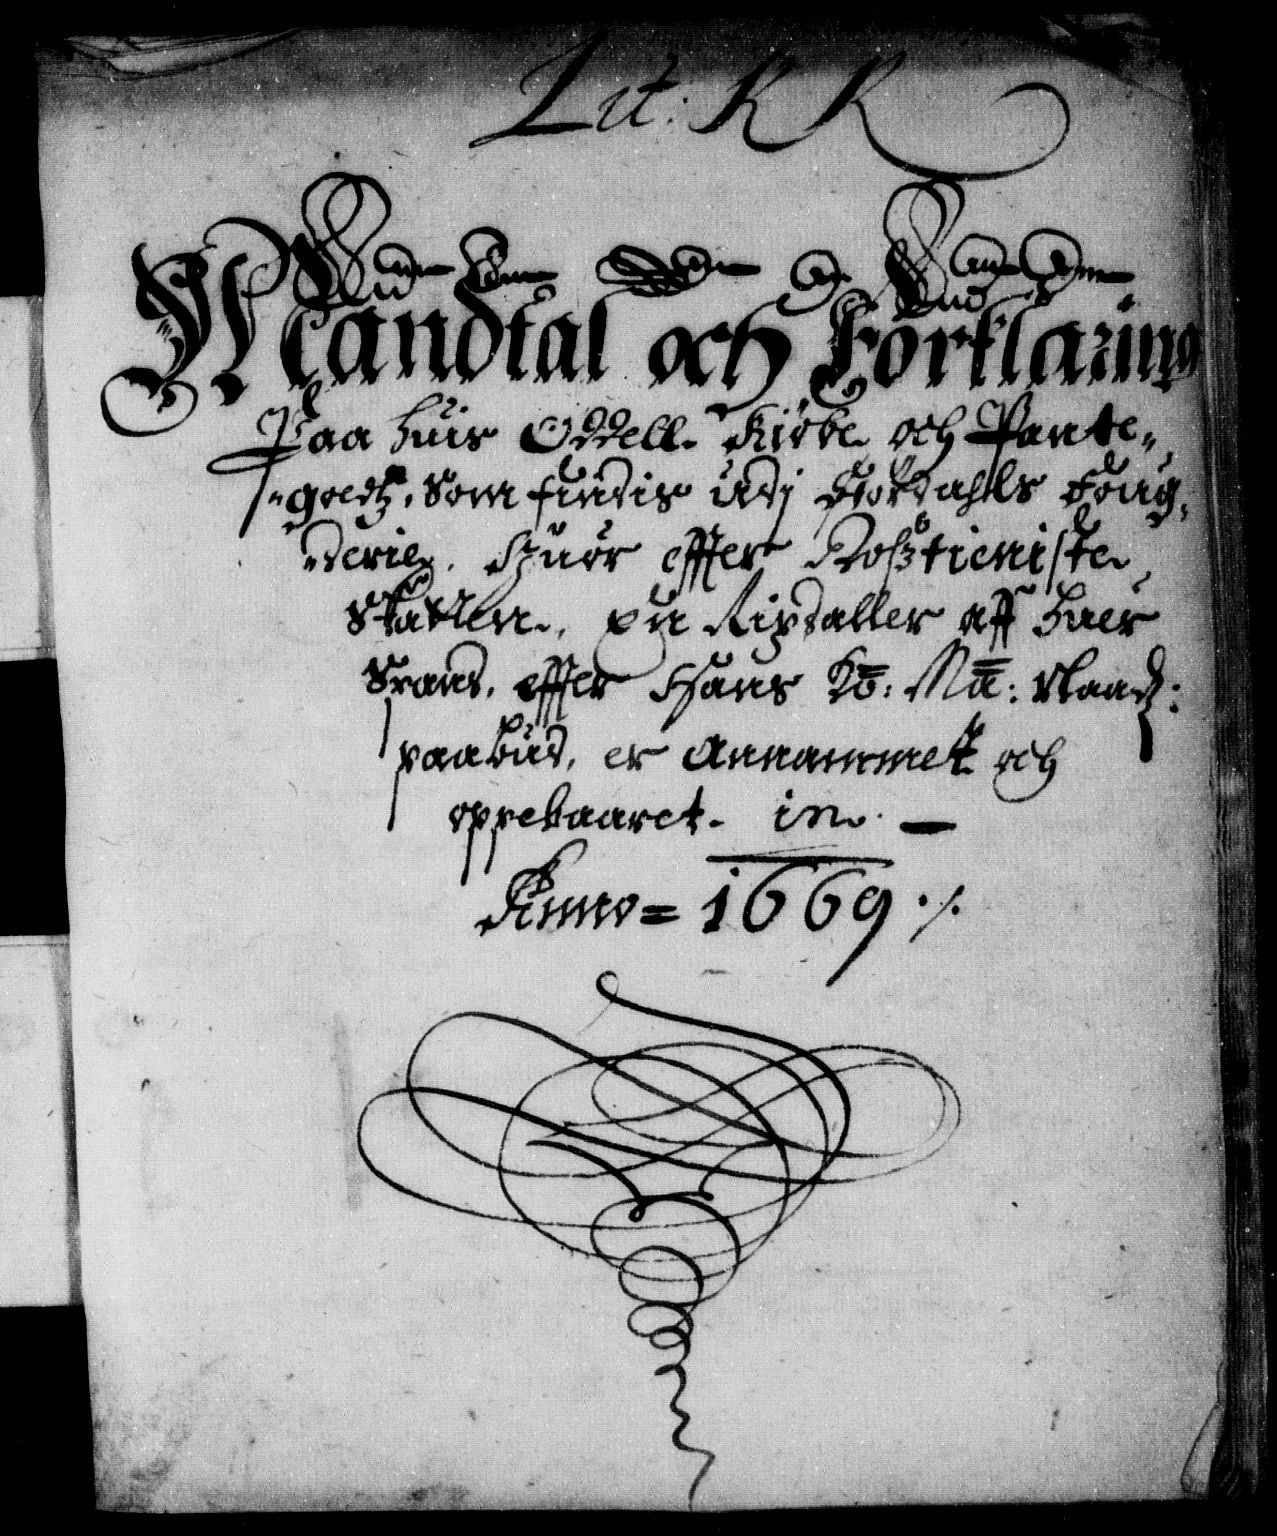 Lit: K K
Mandtal och Forklaring
Paa huis Oddell. Kircke och Pante„
„goedtz, som findis udj Stordahls Foug„
„derie, Huor effter Rosztieniste
Skatten, en Rixdaller aff huer
effter Hans Ko: Ma: Naad:
paabud, er Annammet och
oppebaaret. in
Anno = 1669 ·/.